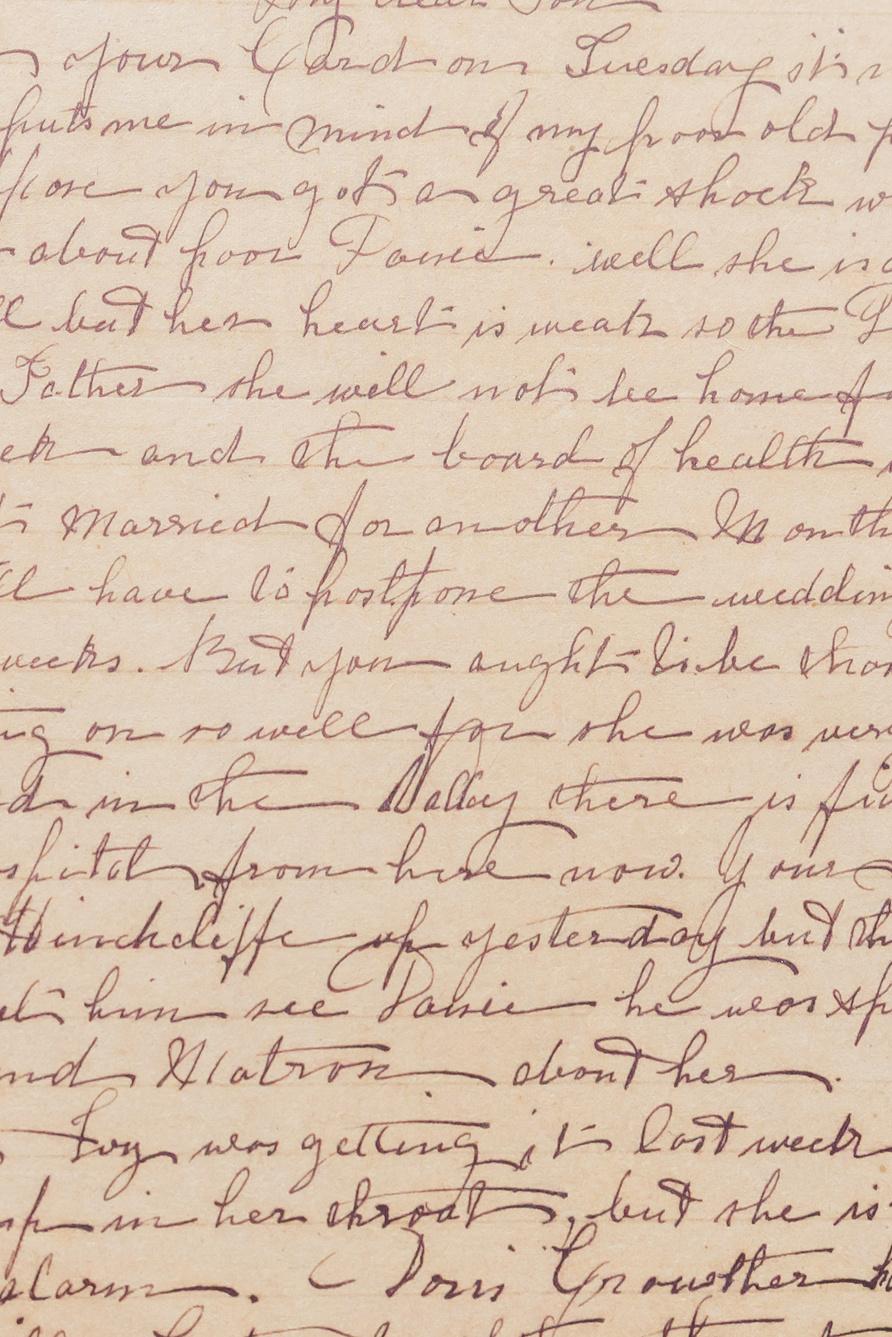 My dear Son
your Card on Tuesday it's
puts me in mind of my poor old
you got a great shock
about poor Janie. well she is
but her heart is weak so the
Father she will not be home
and the board of health
Married for another Month
have to postpone the wedding
weeks. But you aught to be
on so well for she was very
in the Valley there is
from here now. Your
Hinchcliffe up yesterday but
him see Janie he was
Matron about her.
Ivy was getting it last week
in her throat, but she is
alarm. Doris Growther